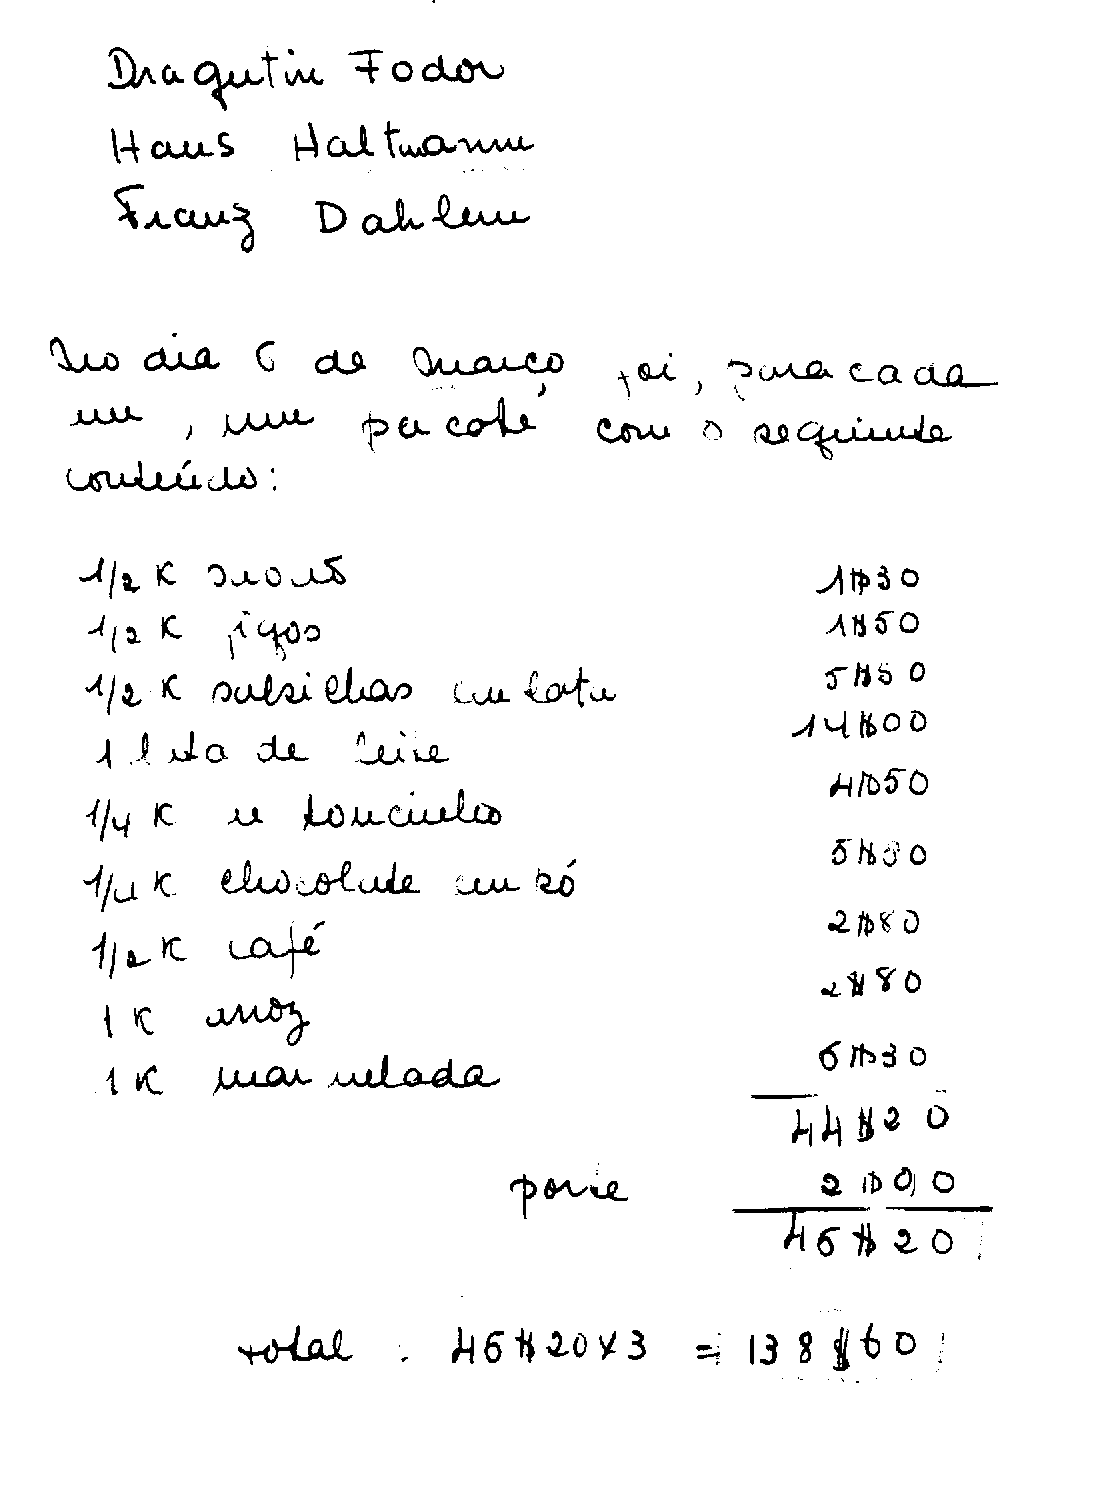 Dragutin Fodor
Hans Haltmann
Franz Dahlem
No dia 6 de Março foi, para cada
um, um pacote com o seguinte
conteúdo:
1/2 K 1$30
1/2 K figos 1$50
1/2 K salsichas em lata 5$50
1 lata de leite 14$00
1/4 K de toucinho 4$50
1/4 K chocolate em pó 5$50
1/2 K café 2$80
1 K arroz 2$80
1 K marmelada 6$30
44$20
porte 2$00
46$20
total . 46$20 x 3 = 138$60